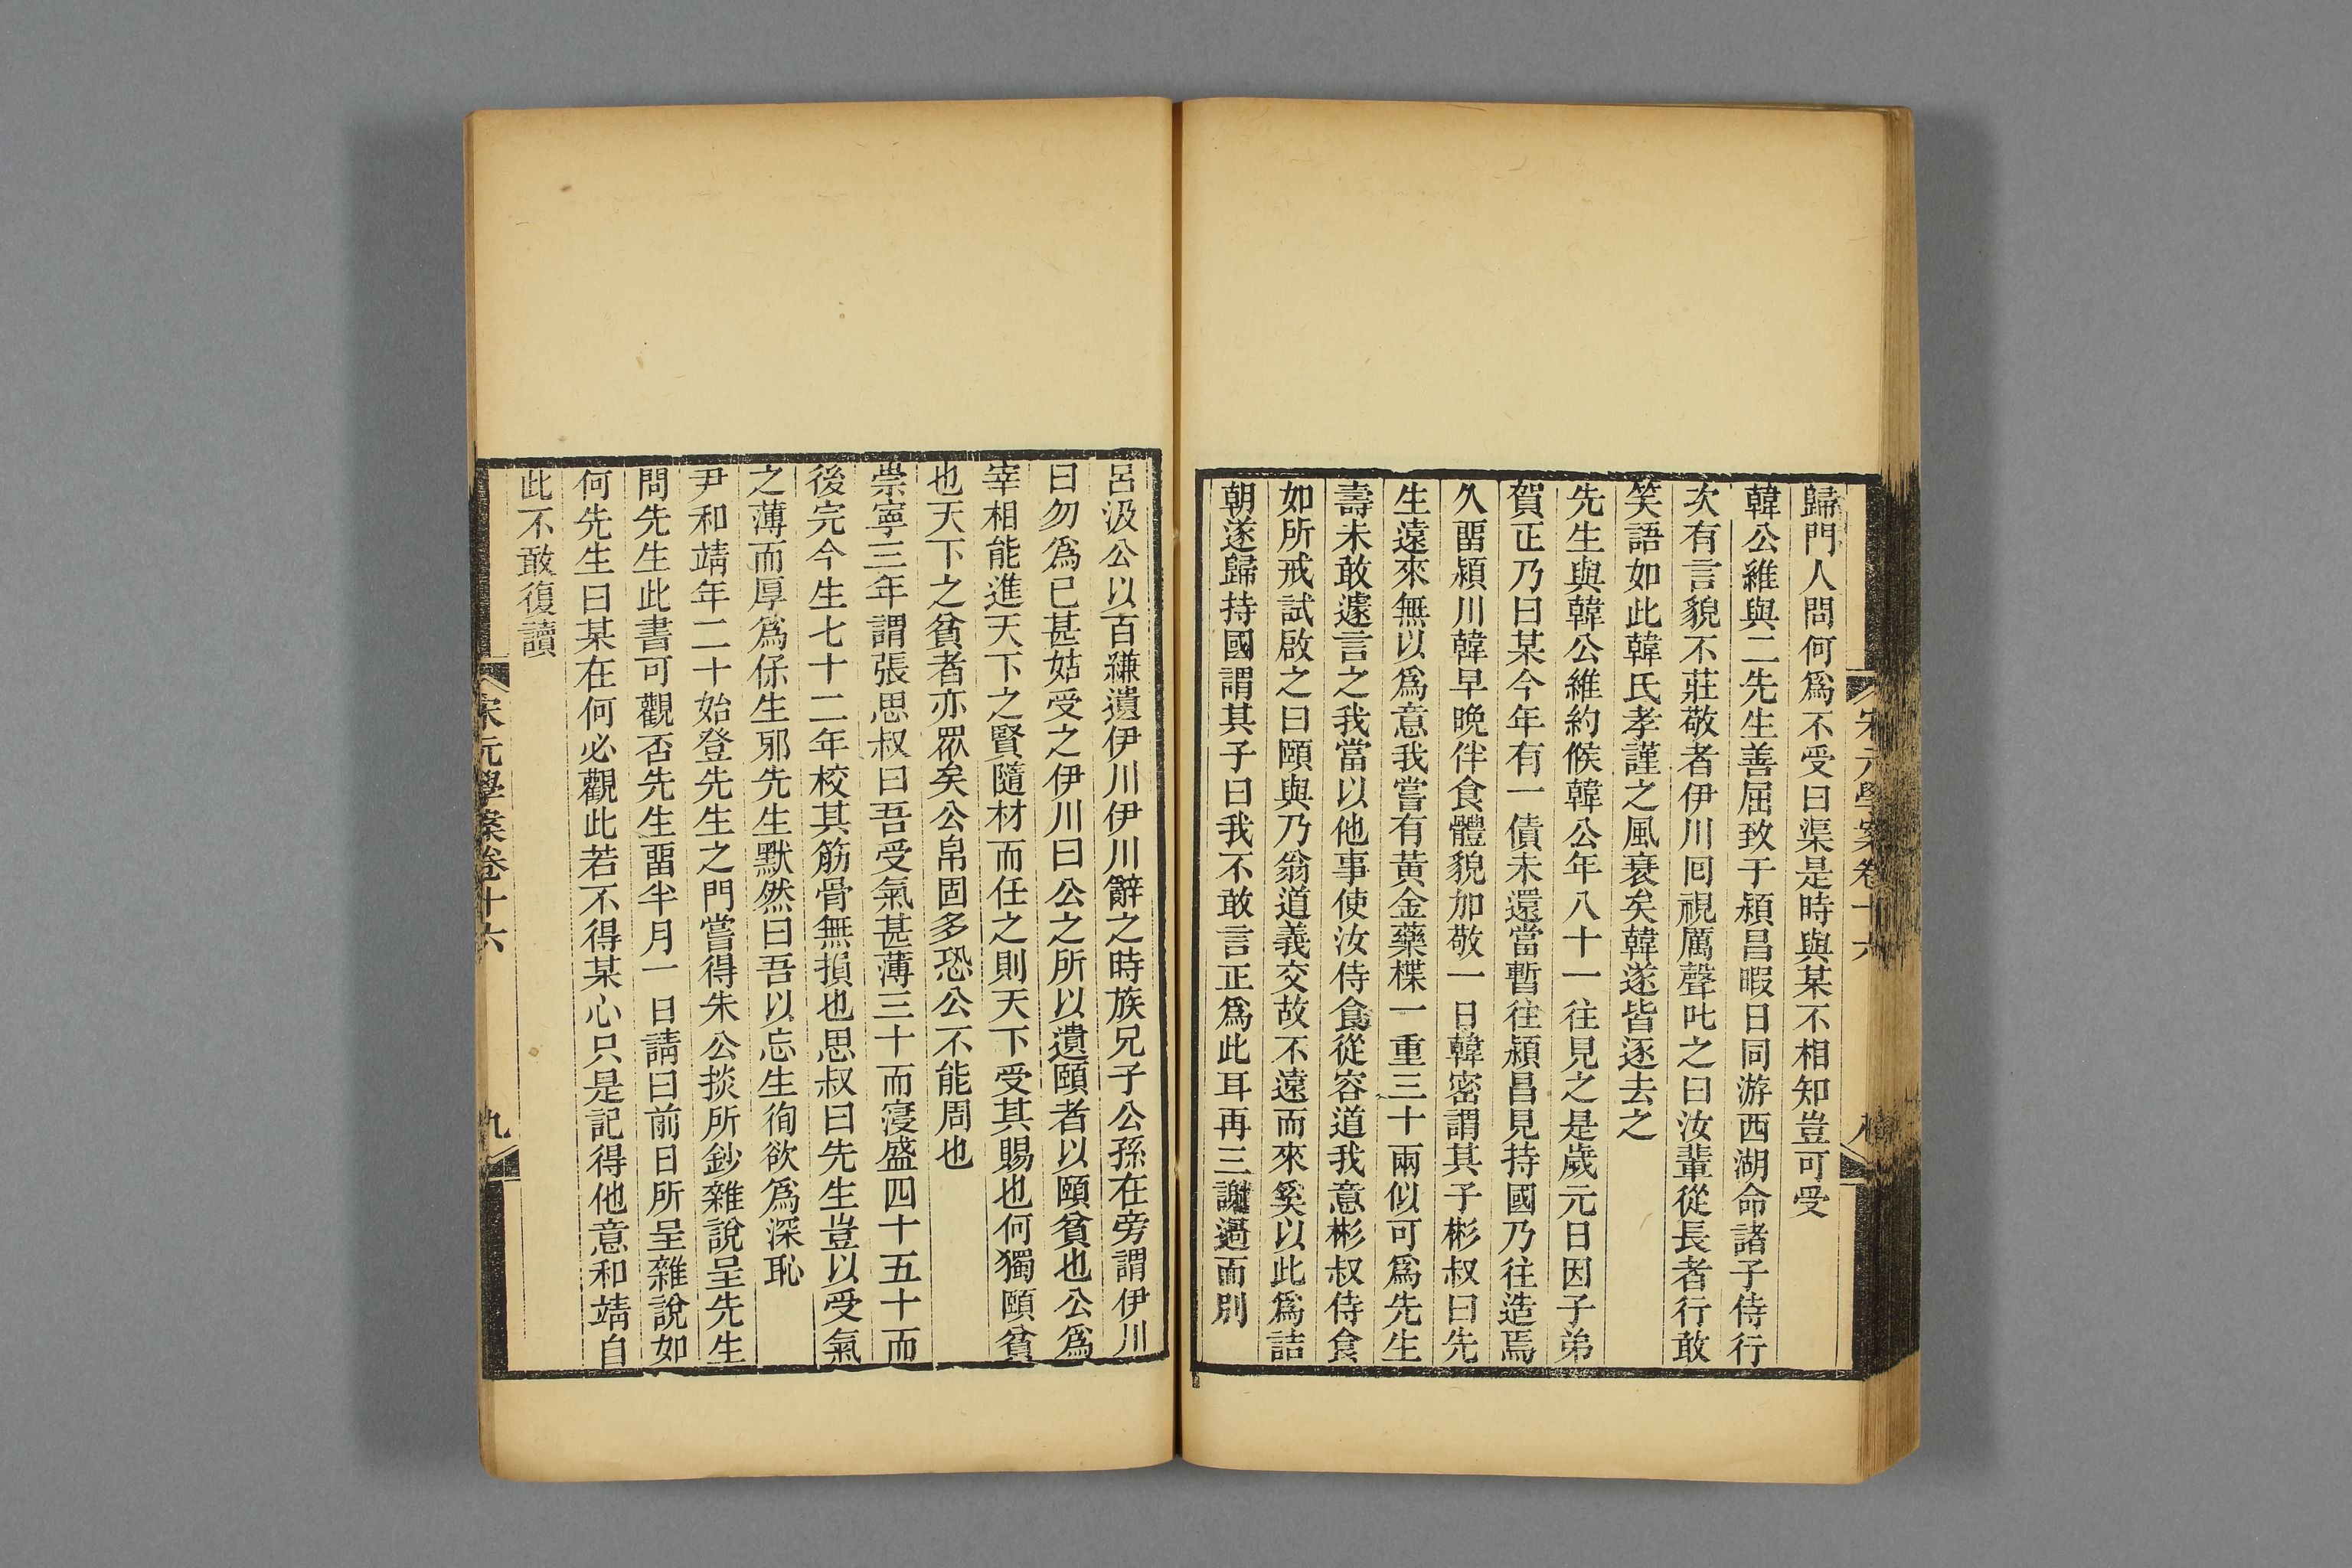 宋元學案卷十六
八
歸門人問何爲不受曰渠是時與某不相知豈可受
韓公維與二先生善屈致于潁昌暇日同游西湖命諸子侍行
次有言貌不莊敬者伊川回視厲聲叱之曰汝輩從長者行敢
笑語如此韓氏孝謹之風衰矣韓遂皆逐去之
先生與韓公維約候韓公年八十一往見之是歲元日因子弟
賀正乃曰某今年有一債未還當暫往潁昌見持國乃往造焉
久畱潁川韓早晚伴食體貌加敬一日韓密謂其子彬叔曰先
生遠來無以爲意我嘗有黃金藥楪一重三十兩似可爲先生
壽未敢遽言之我當以他事使汝侍食從容道我意彬叔侍食
如所戒試啟之曰頤與乃翁道義交故不遠而來奚以此爲詰
朝遂歸持國謂其子曰我不敢言正爲此耳再三謝過而別
呂汲公以百縑遺伊川伊川辭之時族兄子公孫在旁謂伊川
曰勿爲已甚姑受之伊川曰公之所以遺頤者以頤貧也公爲
宰相能進天下之賢隨材而任之則天下受其賜也何獨頤貧
也天下之貧者亦眾矣公帛固多恐公不能周也
崇寧三年謂張思叔曰吾受氣甚薄三十而寖盛四十五十而
後完今生七十二年校其筋骨無損也思叔曰先生豈以受氣
之薄而厚爲保生邪先生默然曰吾以忘生徇欲爲深恥
尹和靖年二十始登先生之門嘗得朱公掞所鈔雜說呈先生
問先生此書可觀否先生畱半月一日請曰前日所呈雜說如
何先生曰某在何必觀此若不得某心只是記得他意和靖自
此不敢復讀
宋元學案卷十六
九